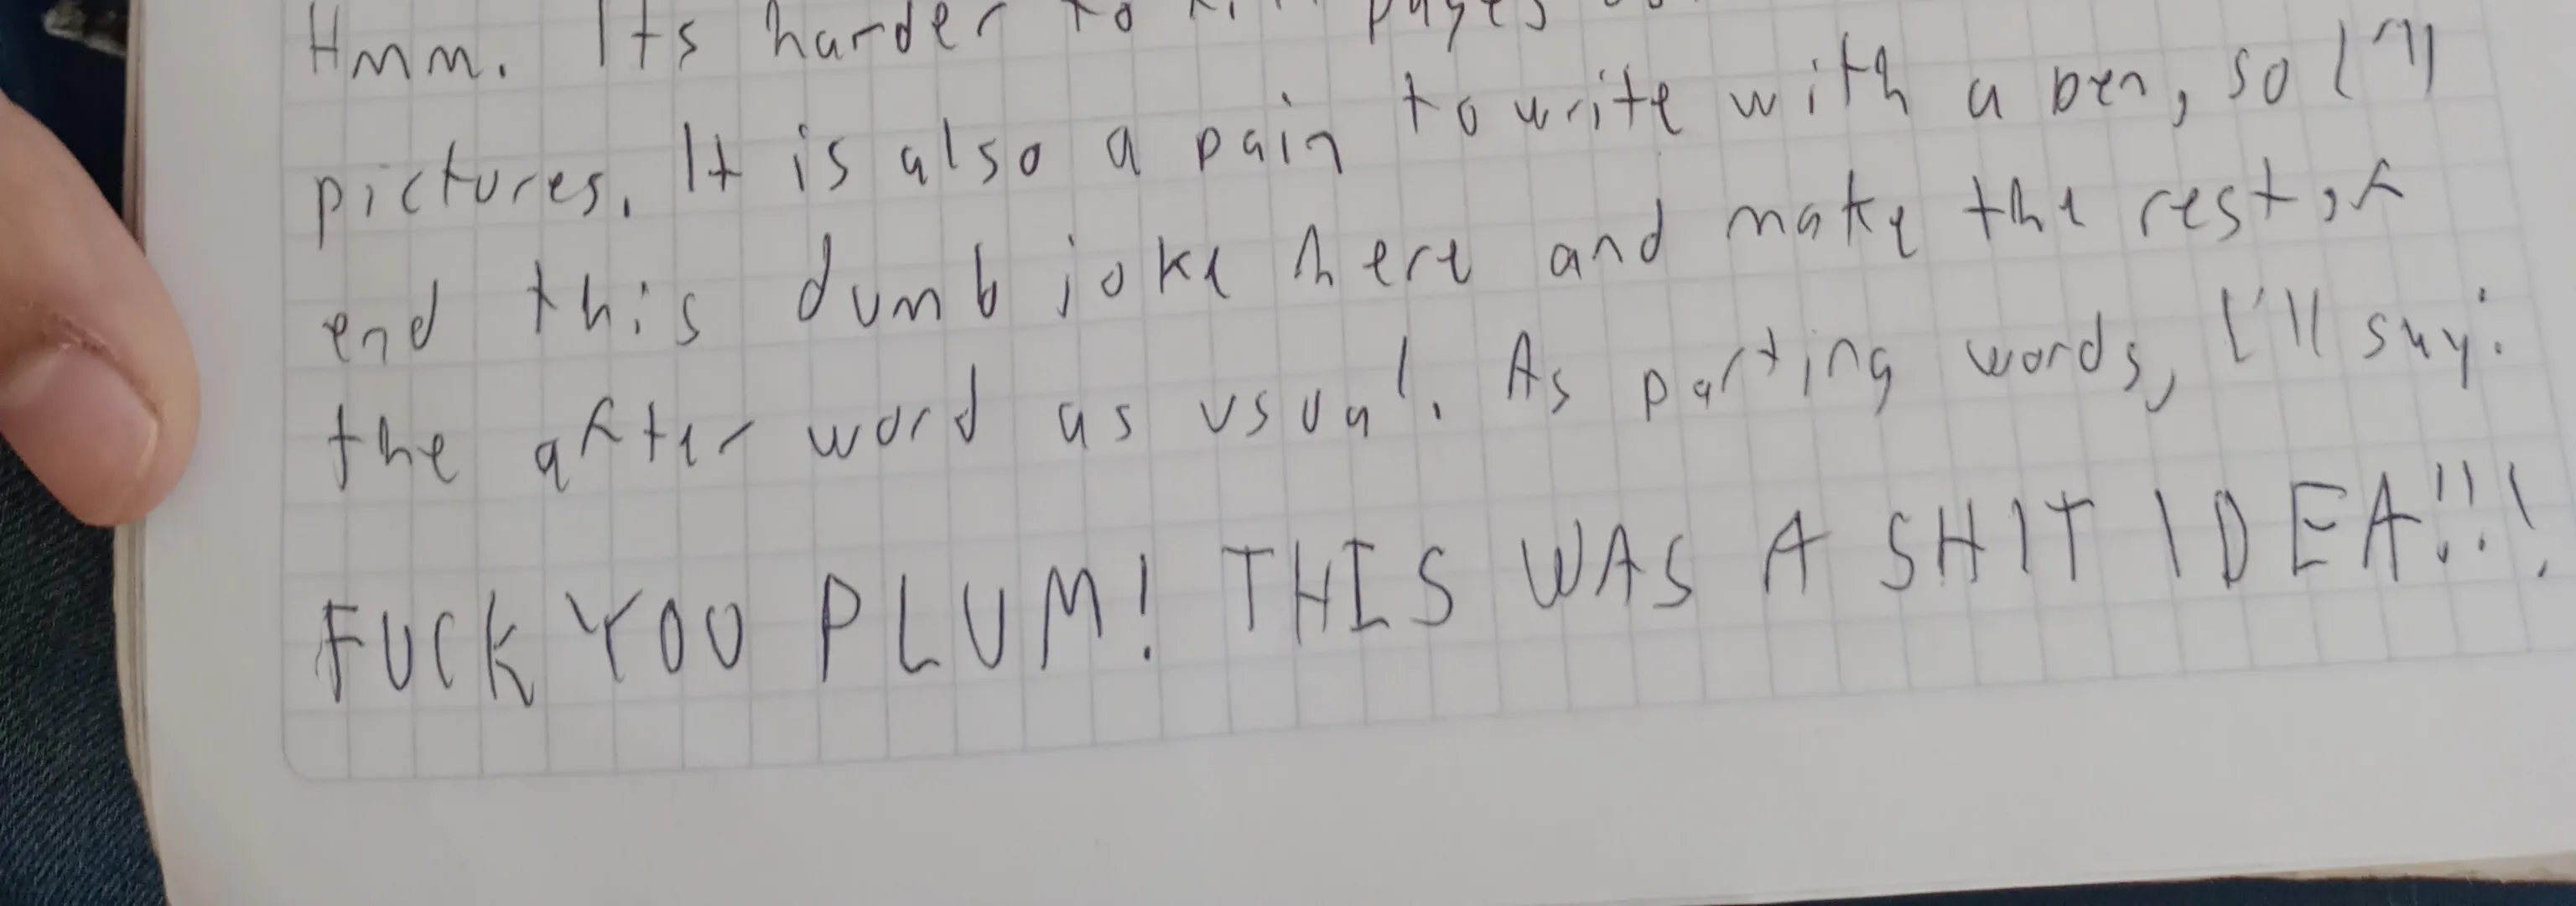 Hmm. Its harder to fill pages
pictures. It is also a pain to write with a pen, so I'll
end this dumb joke here and make the rest of
the afterword as usual. As parting words, I'll say:
FUCK YOU PLUM! THIS WAS A SHIT IDEA!!!